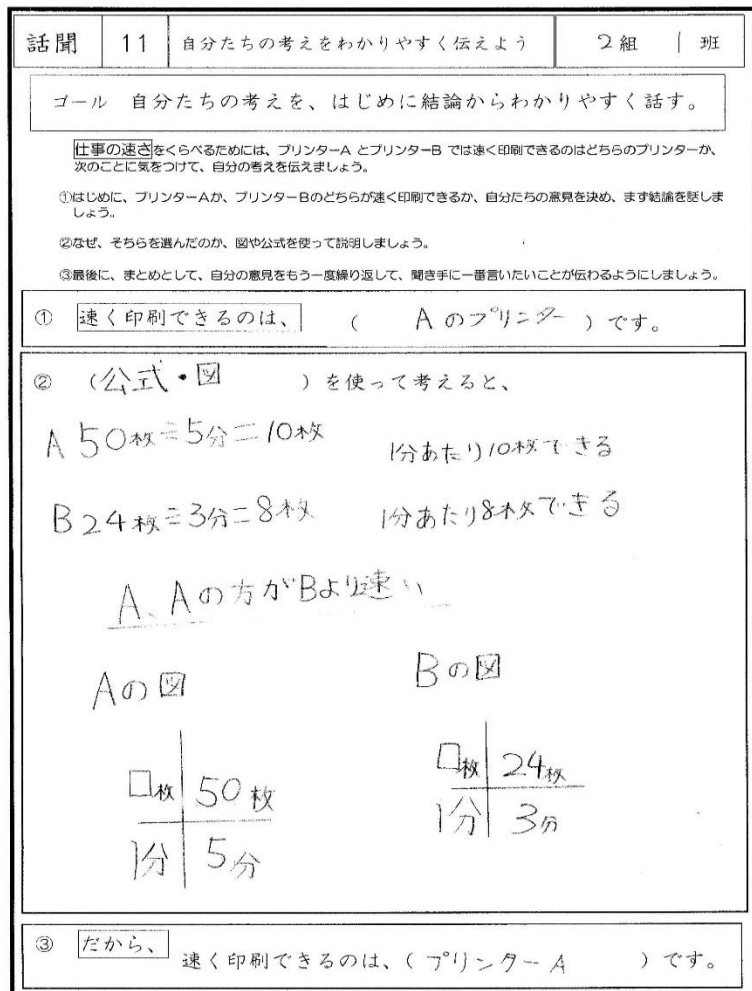 話聞 11 自分たちの考えをわかりやすく伝えよう 2組 1班
ゴール 自分たちの考えを、はじめに結論からわかりやすく話す。
仕事の速さをくらべるためには、プリンターA とプリンターB では速く印刷できるのはどちらのプリンターか、
次のことに気をつけて、自分の考えを伝えましょう。
①はじめに、プリンターAか、プリンターBのどちらが速く印刷できるか、自分たちの意見を決め、まず結論を話しま
しょう。
②なぜ、そちらを選んだのか、図や公式を使って説明しましょう。
③最後に、まとめとして、自分の意見をもう一度繰り返して、聞き手に一番言いたいことが伝わるようにしましょう。
① 速く印刷できるのは、 ( Aのプリンター ) です。
② (公式・図 ) を使って考えると、
A 50枚÷5分=10枚 1分あたり10枚できる
B 24枚÷3分=8枚 1分あたり8枚できる
A、Aの方がBより速い
Aの図 Bの図
□枚 50枚 □枚 24枚
1分 5分 1分 3分
③ だから、 速く印刷できるのは、( プリンターA ) です。